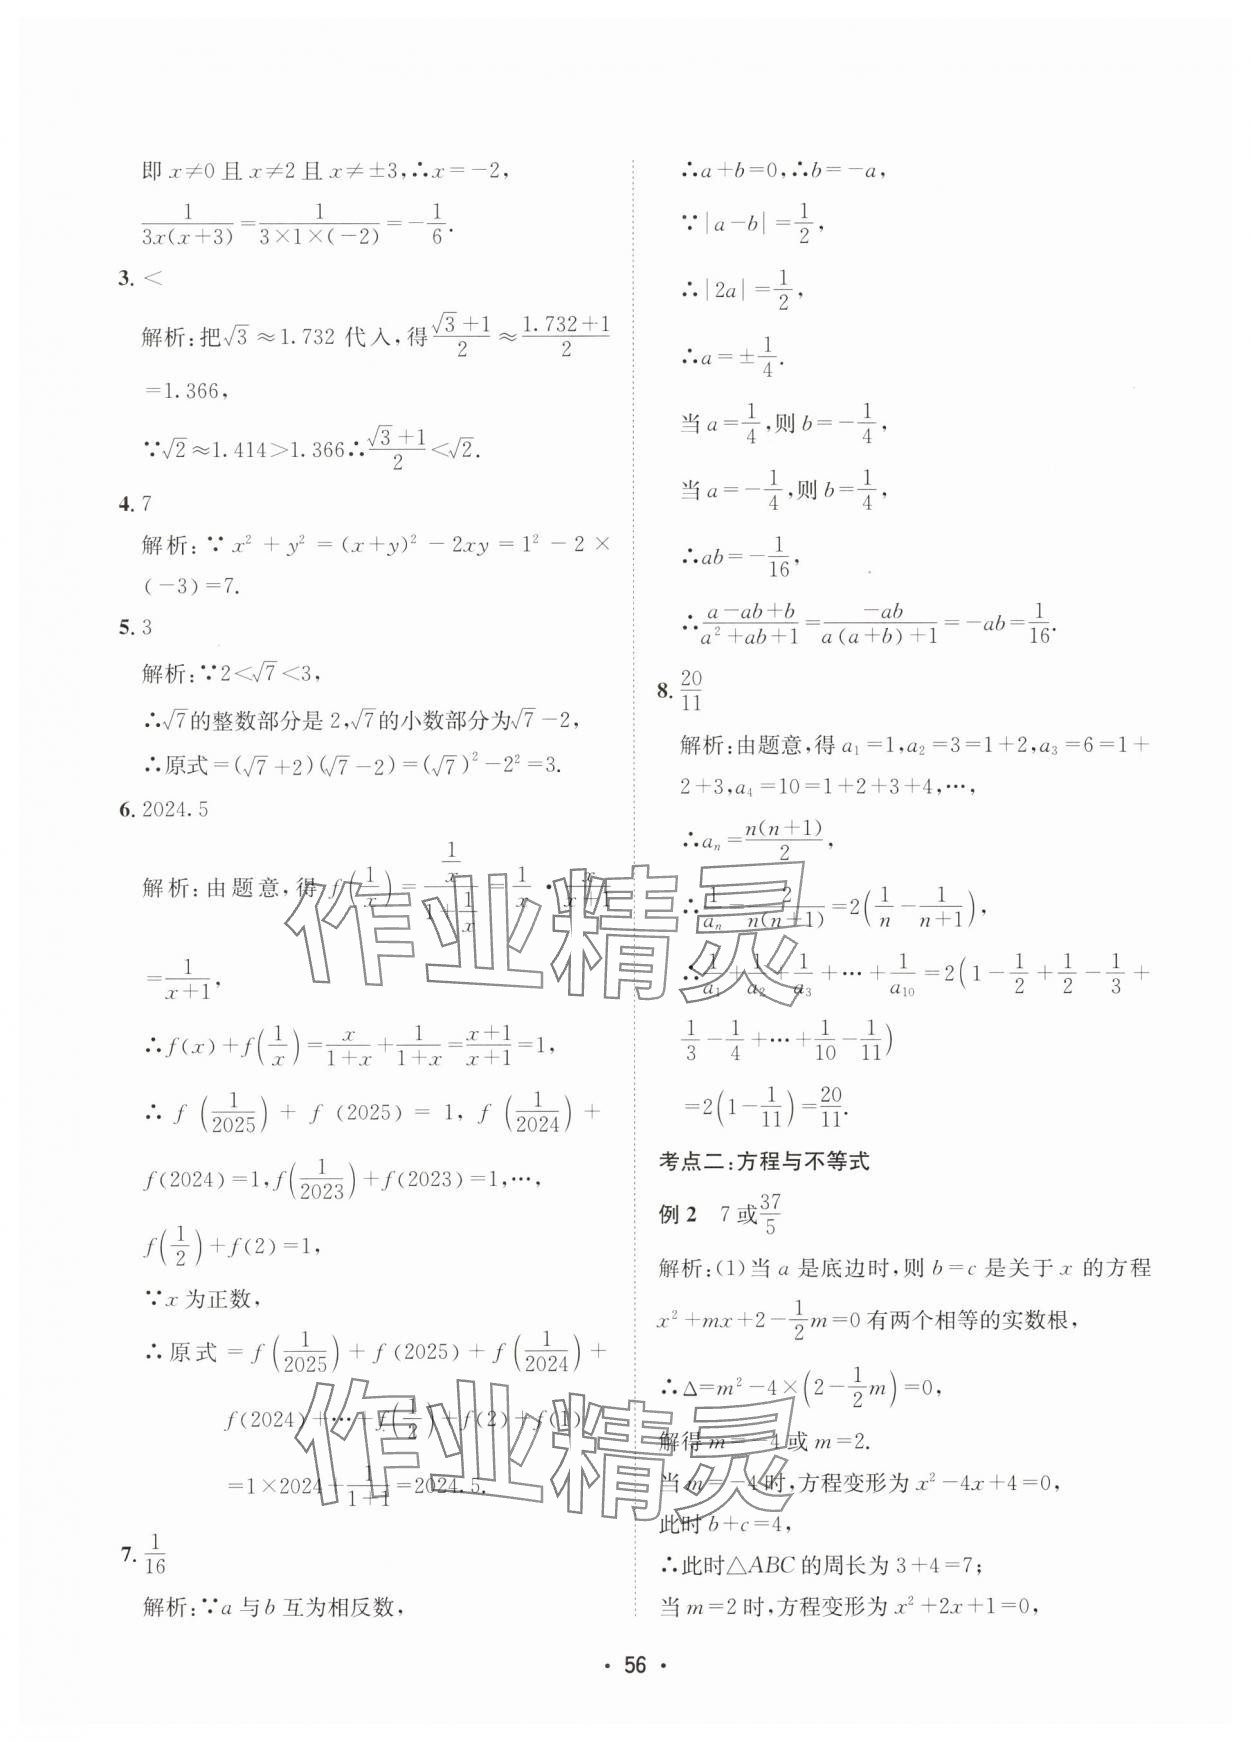 即 x≠0 且 x≠2 且 x≠±3,∴x=-2,
1/(3x(x+3))=1/(3×1×(-2))=-1/6.
3. <
解析:把√3≈1.732 代入,得(√3+1)/2≈(1.732+1)/2
=1.366,
∵√2≈1.414>1.366∴(√3+1)/2<√2.
4. 7
解析:∵x²+y²=(x+y)²-2xy=1²-2×
(-3)=7.
5. 3
解析:∵2<√7<3,
∴√7的整数部分是 2,√7的小数部分为√7-2,
∴原式=(√7+2)(√7-2)=(√7)²-2²=3.
6. 2024.5
解析:由题意,得 f(1/x)=(1/x)/(1+1/x)=1/x·x/(x+1)
=1/(x+1),
∴f(x)+f(1/x)=x/(1+x)+1/(1+x)=(x+1)/(x+1)=1,
∴f(1/2025)+f(2025)=1,f(1/2024)+
f(2024)=1,f(1/2023)+f(2023)=1,…,
f(1/2)+f(2)=1,
∵x 为正数,
∴原式=f(1/2025)+f(2025)+f(1/2024)+
f(2024)+…+f(1/2)+f(2)+f(1)
=1×2024+1/(1+1)=2024.5.
7. 1/16
解析:∵a 与 b 互为相反数,
∴a+b=0,∴b=-a,
∵|a-b|=1/2,
∴|2a|=1/2,
∴a=±1/4.
当 a=1/4,则 b=-1/4,
当 a=-1/4,则 b=1/4,
∴ab=-1/16,
∴(a-ab+b)/(a²+ab+1)=-ab/(a(a+b)+1)=-ab=1/16.
8. 20/11
解析:由题意,得 a₁=1,a₂=3=1+2,a₃=6=1+
2+3,a₄=10=1+2+3+4,…,
∴aₙ=n(n+1)/2,
∴1/aₙ=2/(n(n+1))=2(1/n-1/(n+1)),
∴1/a₁+1/a₂+1/a₃+…+1/a₁₀=2(1-1/2+1/2-1/3+
1/3-1/4+…+1/10-1/11)
=2(1-1/11)=20/11.
考点二:方程与不等式
例2 7 或37/5
解析:(1)当 a 是底边时,则 b=c 是关于 x 的方程
x²+mx+2-1/2m=0 有两个相等的实数根,
∴Δ=m²-4×(2-1/2m)=0,
解得 m=-4 或 m=2.
当 m=-4 时,方程变形为 x²-4x+4=0,
此时 b+c=4,
∴此时△ABC 的周长为 3+4=7;
当 m=2 时,方程变形为 x²+2x+1=0,
作业精灵
作业精灵
· 56 ·